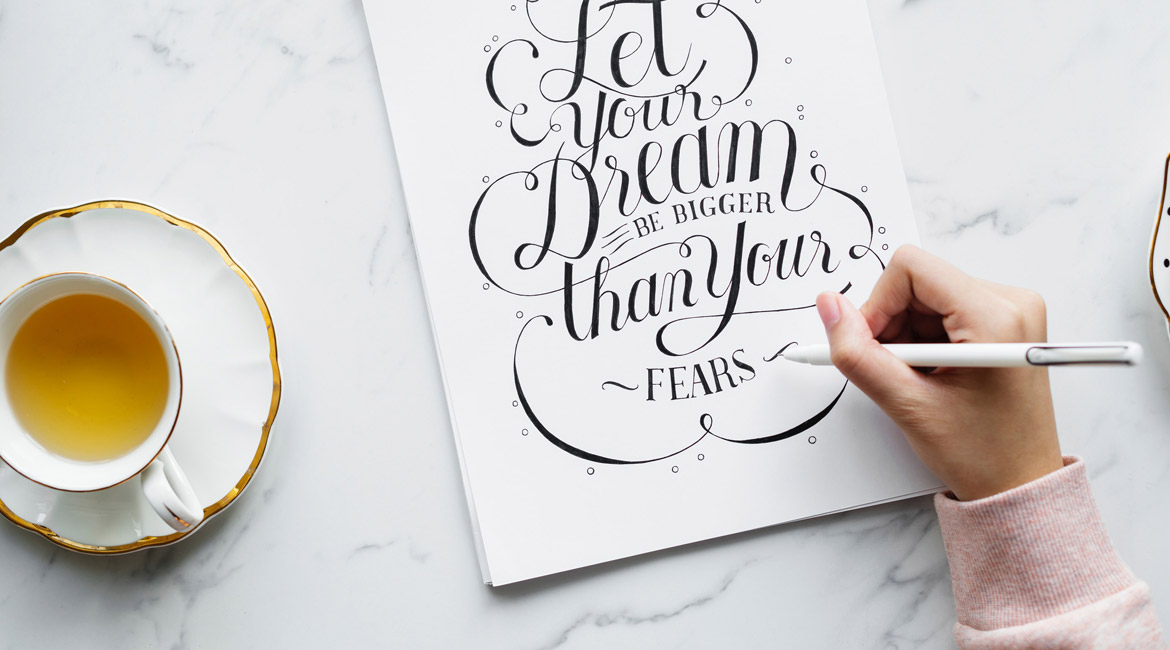 Let
Your
Dream
BE BIGGER
than Your
~ FEARS ~